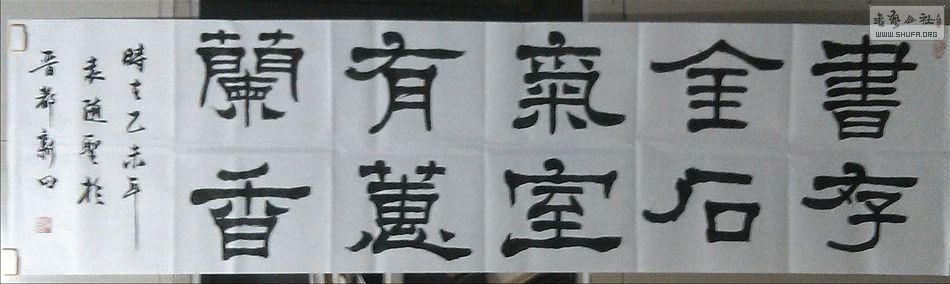 書存
金石
氣室
有蕙
蘭香
時在乙未年
袁隨聖於
晋都新田
書齋公社
WWW.SHUFA.ORG